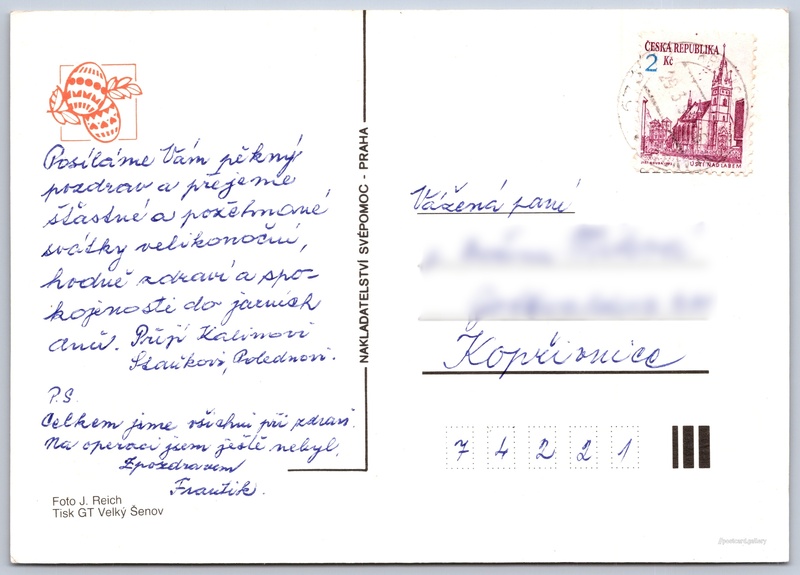 Posíláme Vám pěkný
pozdrav a přejeme
šťastné a požehnané
svátky velikonoční,
hodně zdraví a spo-
kojenosti do jarních
dnů. Přejí Kalinovi
Staňkovi, Polednovi.
P.S.
Celkem jsme všichni při zdraví.
Na operaci jsem ještě nebyl.
S pozdravem
Frantík.
Foto J. Reich
Tisk GT Velký Šenov
NAKLADATELSTVÍ SVÉPOMOC - PRAHA
ČESKÁ REPUBLIKA
2 Kč
ÚSTÍ NAD LABEM
Vážená paní
Kopřivnice
74221